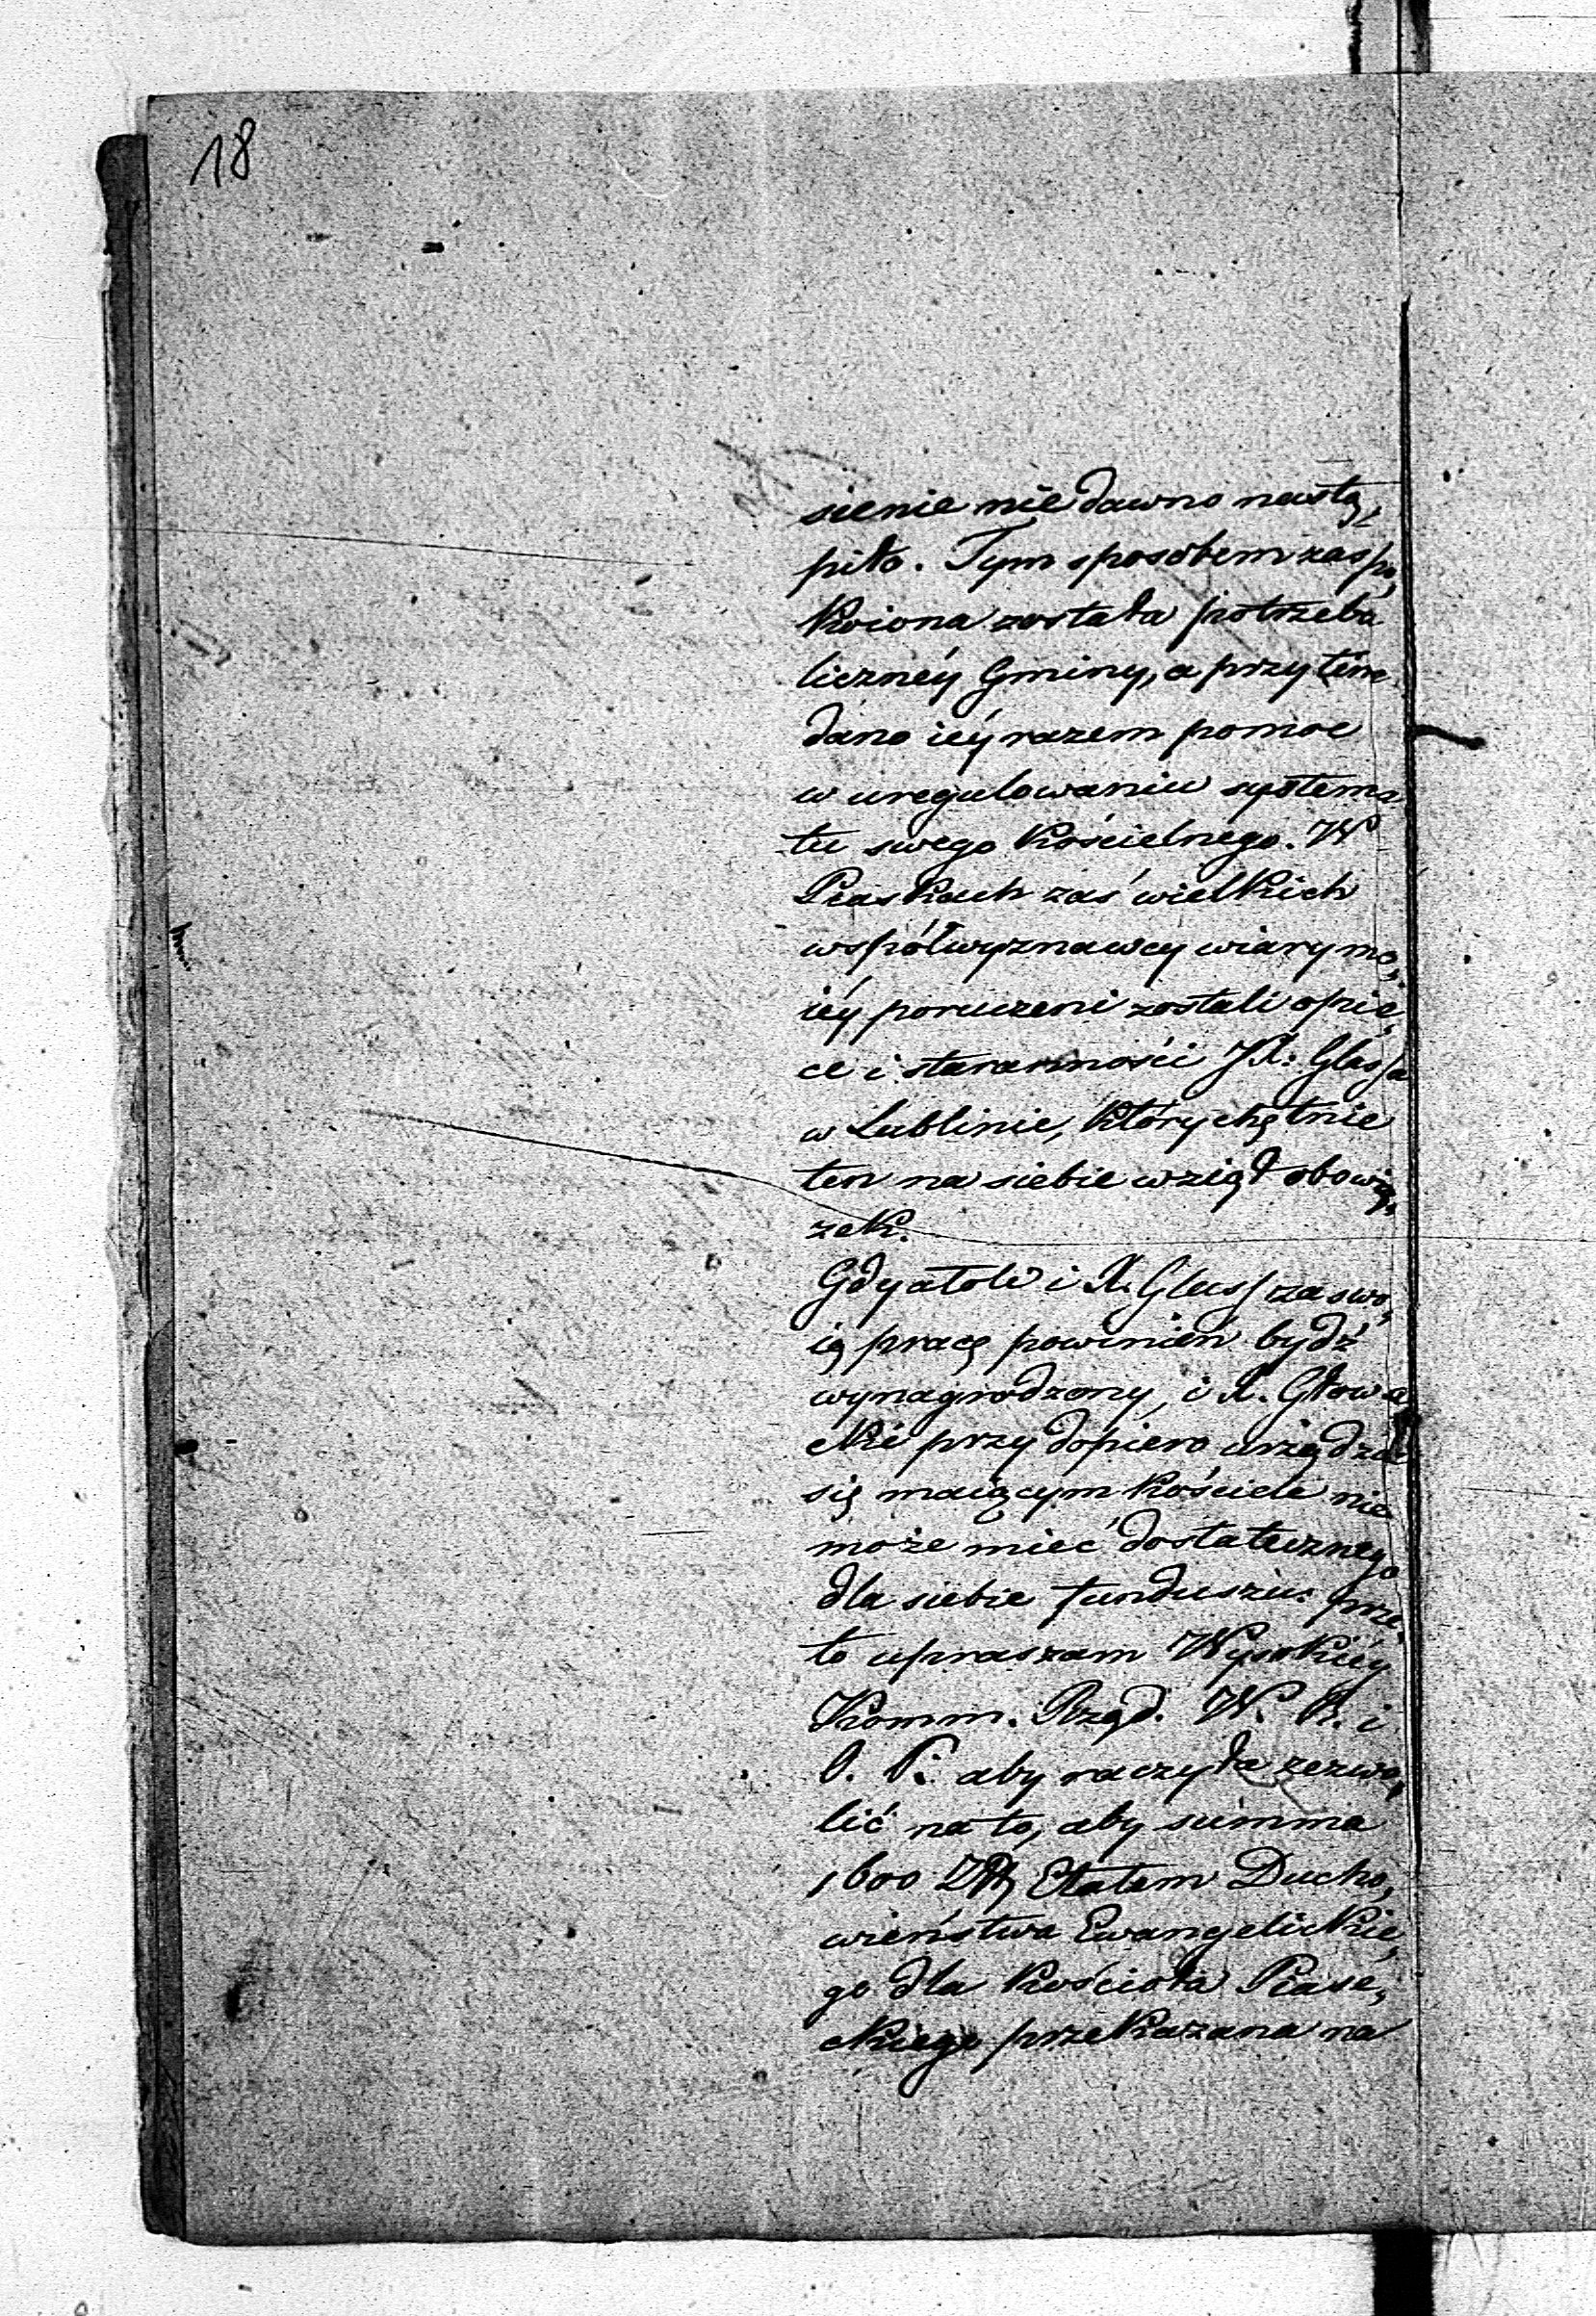 18
sienie nie dawno nastą,
piło. Tym sposobem zaspo,
koiona została potrzeba
licznéy Gminy, a przytém
dano iéy razem pomoc
w uregulowaniu systema
tu swego Kościelnego. W
Piaskach zaś wielkich
współwyznawcy wiary mo,
iéy poruczeni zostali opie,
ce i staranności JX: Glassa
w Lublinie, który chętnie
ten na siebie wziął obowią,
zek.
Gdy atoli i X. Glass za swo,
ią pracę powinien bydź
wynagrodzony, i X. Głowa
cki przy dopiero urządzać
się maiącym Kościele nie
może mieć dostatecznego
dla siebie funduszu. prze,
to upraszam Wysokiéy
Komm. Rząd. W. R. i
O. P. aby raczyła zezwo,
lić na to, aby summa
1600 Zł Etatem Ducho,
wieństwa Ewangelickie,
go dla Kościoła Piase,
ckiego przekazana na